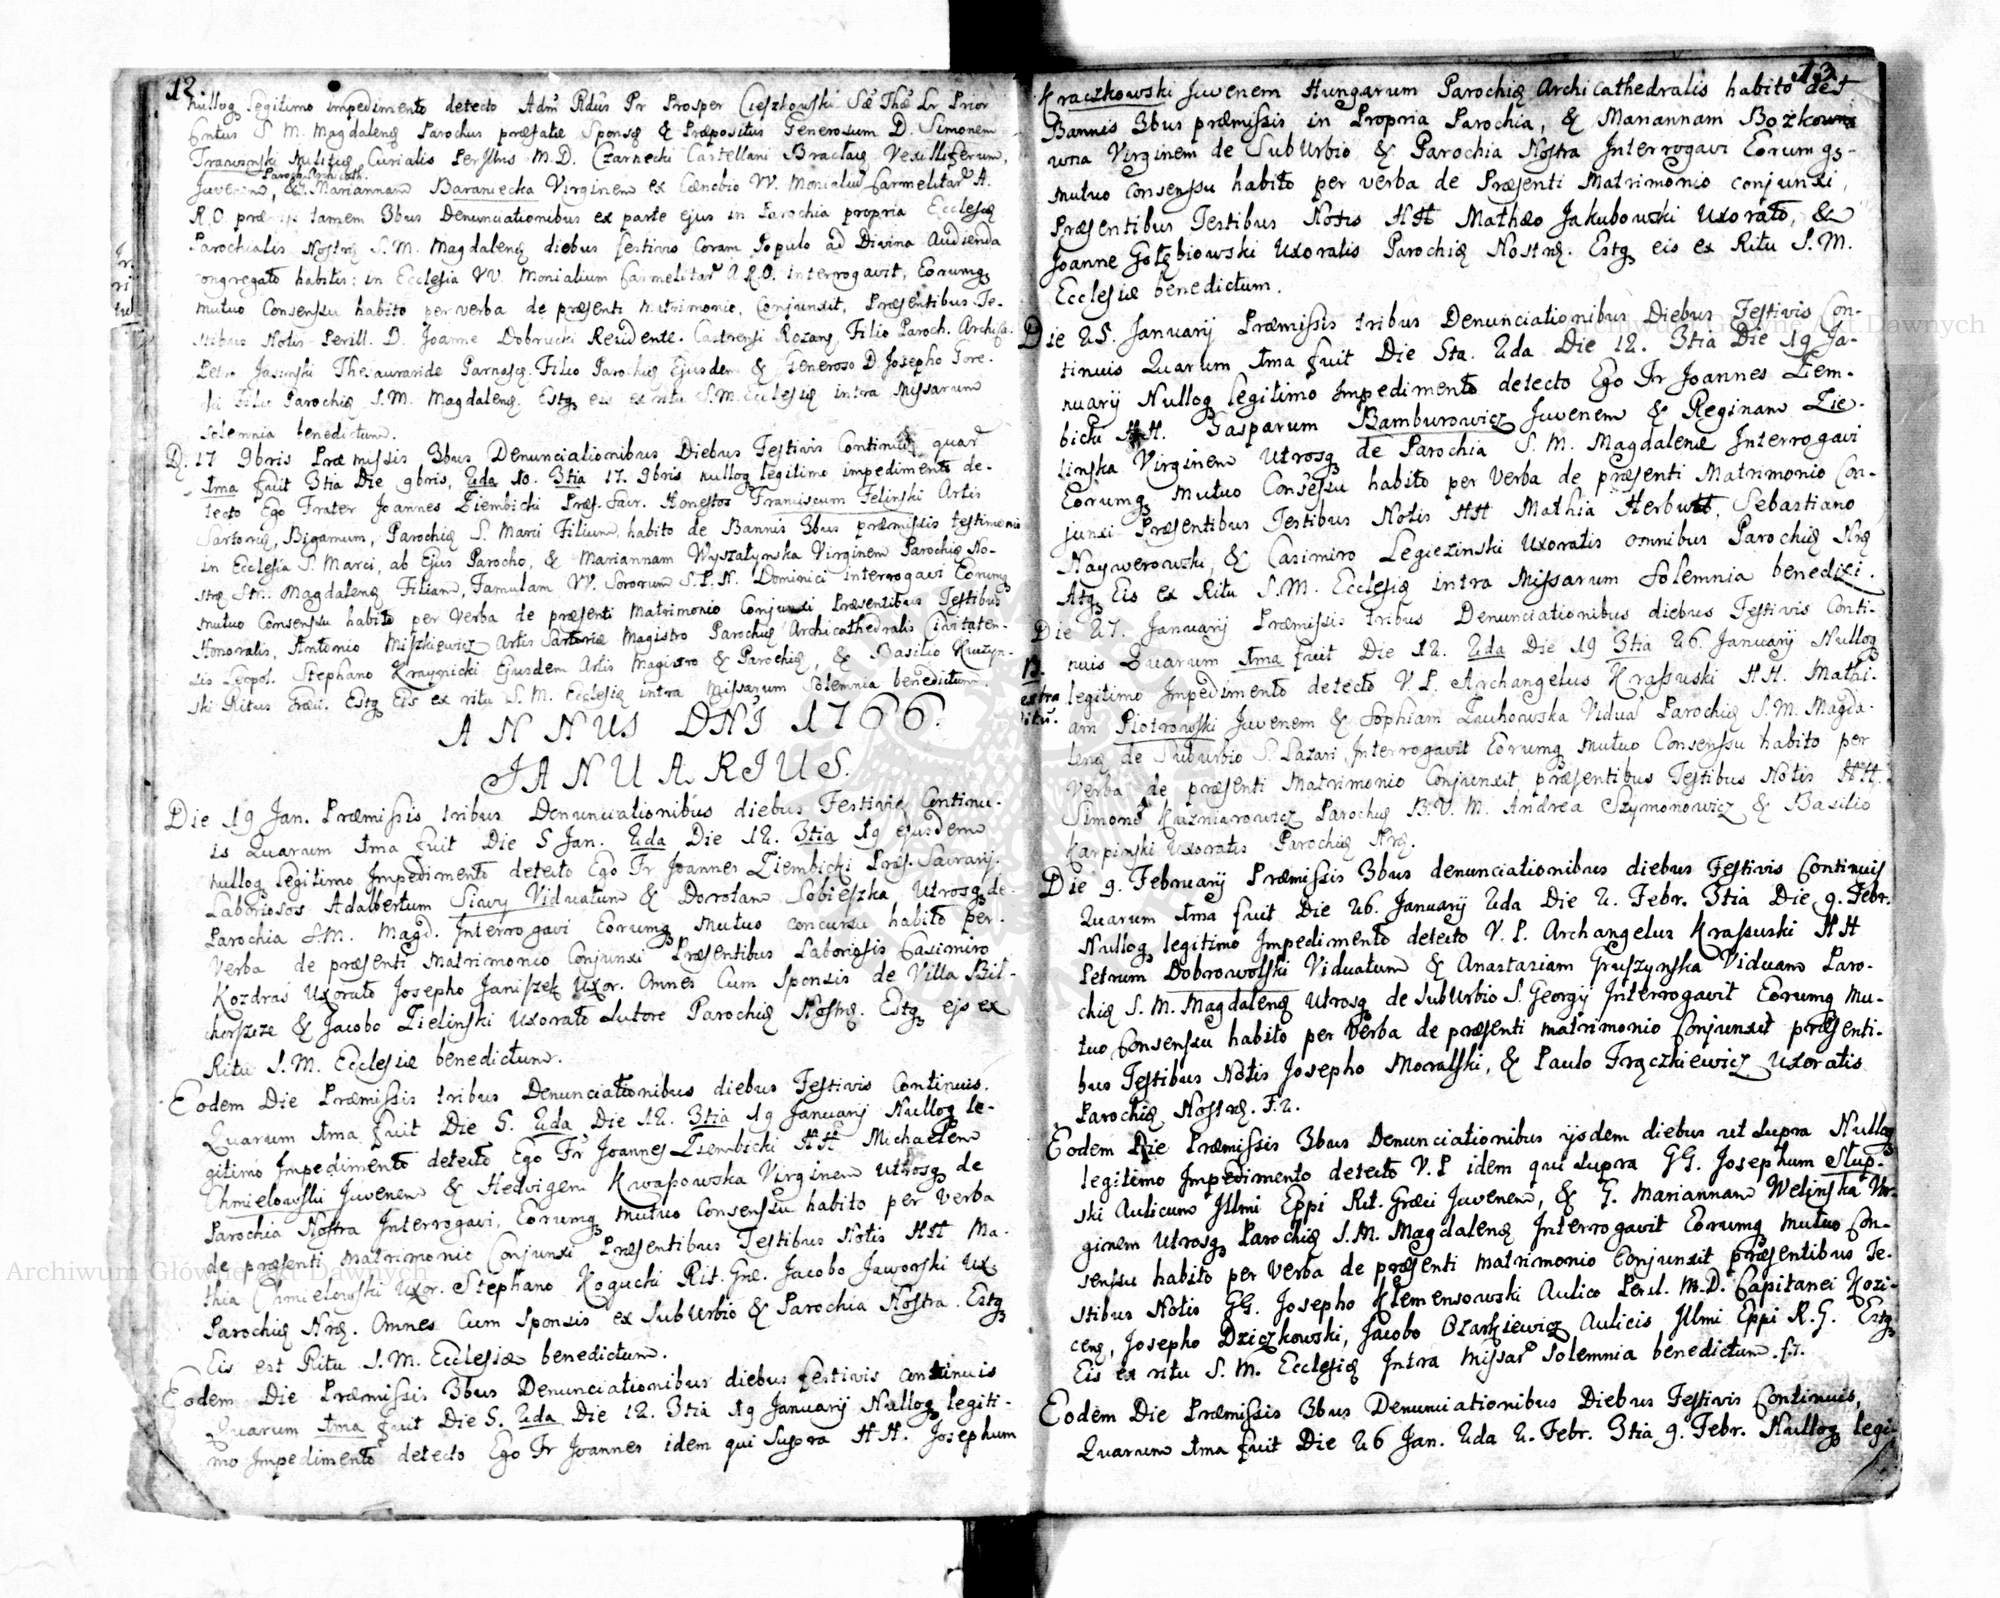 12.
nulloq legitimo impedimento detecto Adm Rdus Pr Prosper Cieszkowski Sæ Thæ Lr Prior
Contus S. M. Magdalenę Parochus præfatæ Sponsę & Præpositus Generosum D. Simonem
Curialis Per Illris M. D. Czarnecki Castellani Vexilliferum,
Juvenem, & G. Mariannam Baraniecka Virginem ex Cænobio VV. Monialiū Carmelitar A.
R. O. tamem 3bus Denunciationibus ex parte ejus in Parochia propria Ecclesię
Parochialis Nostrę S. M. Magdalenę diebus festivis Coram Populo ad Divina Audienda
congregato habitis: in Ecclesia VV. Monialium Carmelitar A. R. O. interrogavit, Eorumq
mutuo Consensu habito per verba de præsenti matrimonio, Conjunxit, Præsentibus Te-
stibus Notis Perill. D. Joanne Dobrucki Residente. Castrensi Filio Paroch. Archica.
Petro Jasinski Filio Parochię Ejusdem & Generoso D. Josepho Gore.
ski Filio Parochię S. M. Magdalenę. Estq eis ex ritu S. M. Ecclesię intra Missarum
solemnia benedictum.
D. 17 9bris Præmissis 3bus Denunciationibus Diebus Festivis Continuis quar
1ma fuit 3tia Die 9bris, 2da 10. 3tia 17. 9bris nulloq legitimo impedimento de-
tecto Ego Frater Joannes Ziembicki Præf. Sacr. Honestos Franciscum Felinski Artis
Sartorię, Bigamum, Parochię S. Marci Filium habito de Bannis 3bus præmissis testimonio
in Ecclesia S. Marci, ab Ejus Parocho, & Mariannam Wyszatynska Virginem Parochię No-
stræ Magdalenę Filiam, Famulam VV. Sororum S. P. N. Dominici interrogavi Eorumq
mutuo Consensu habito per Verba de præsenti Matrimonio Conjunxi Præsentibus Testibus
Honoratis, Antonio Miszkiewicz Artis Sartoriæ Magistro Parochię Archicathedralis Civitaten-
sis Leopol. Stephano Kraynicki Ejusdem Artis Magistro & Parochię, & Basilio
ski Ritus Estq Eis ex ritu S. M. Ecclesię intra Missarum Solemnia benedictum.
ANNUS DNI 1766.
JANUARIUS.
Die 19 Jan. Præmissis tribus Denunciationibus diebus Festivis Continu-
is Quarum 1ma fuit Die 5 Jan. 2da Die 12. 3tia 19 ejusdem
nulloq legitimo Impedimento detecto Ego Fr Joannes Ziembicki Præf. Sacrarij.
Laboriosos Adalbertum Siawy Viduatum & Dorotam Sobieszka Utrosq de
Parochia S. M. Magd. Interrogavi Eorumq Mutuo concursu habito per
Verba de præsenti Matrimonio Conjunxi Præsentibus Laboriosis Casimiro
Kozdras Uxorato Josepho Janiszek Uxor. Omnes Cum Sponsis de Villa Bil-
chorszcze & Jacobo Zielinski Uxorato Lutore Parochię Nostrę. Estq ejs ex
Ritu S. M. Ecclesiæ benedictum.
Eodem Die Præmissis tribus Denunciationibus diebus Festivis Continuis.
Quarum 1ma fuit Die 5. 2da Die 12. 3tia 19 Januarij Nulloq le-
gitimo Impedimento detecto Ego Fr Joannes Ziembicki HH Michaelem
Chmielowski Juvenem & Hedvigem Kwassowska Virginem utrosq de
Parochia Nostra Interrogavi, Eorumq mutuo Consensu habito per Verba
de præsenti matrimonio Conjunxi Præsentibus Testibus Notis HH Ma-
thia Chmielowski Uxor. Stephano Kogucki Rit. Græ. Jacobo Jaworski Ux.
Parochię Nrę. Omnes Cum Sponsis ex SubUrbio & Parochia Nostra. Estq
Eis est Ritu S. M. Ecclesiæ benedictum.
Eodem Die Præmissis 3bus Denunciationibus diebus festivis continuis
Quarum 1ma fuit Die 5. 2da Die 12. 3tia 19 Januarij Nulloq legiti-
mo Impedimento detecto Ego Fr Joannes idem qui Supra HH. Josephum
13.
Kraczkowski Juvenem Hungarum Parochię Archicathedralis habito de
Bannis 3bus præmissis in Propria Parochia, & Mariannam Bożkow
wna Virginem de SubUrbio & Parochia Nostra Interrogavi Eorumq
mutuo Consensu habito per verba de Præsenti Matrimonio conjunxi,
Præsentibus Testibus Notis HH Mathæo Jakubowski Uxorato, &
Joanne Gołębiowski Uxoratis Parochię Nostrę. Estq eis ex Ritu S. M.
Ecclesiæ benedictum.
Die 25. Januarij Præmissis tribus Denunciationibus Diebus Festivis Con-
tinuis Quarum 1ma fuit Die 5ta. 2da Die 12. 3tia Die 19 Ja-
nuarij Nulloq legitimo Impedimento detecto Ego Fr Joannes Ziem-
bicki HH. Gasparum Bamburowicz Juvenem & Reginam Zie-
linska Virginem Utrosq de Parochia S. M. Magdalenæ Interrogavi
Eorumq Mutuo Consesu habito per Verba de præsenti Matrimonio Con-
junxi Præsentibus Testibus Notis HH Mathia Herbutt, Sebastiano
Naywerowski, & Casimiro Legiezinski Uxoratis omnibus Parochię Nrę
Atq Eis ex Ritu S. M. Ecclesię intra Missarum Solemnia benedixi.
Die 27. Januarij Præmissis tribus Denunciationibus diebus Festivis Conti-
nuis Quarum 1ma fuit Die 12. 2da Die 19 3tia 26 Januarij Nulloq
legitimo Impedimento detecto V. P. Archangelus Krassuski HH. Mathi-
am Piotrowski Juvenem & Sophiam Zuchowska Viduā Parochię S. M. Magda-
lenę de Suburbio S. Lazari, Interrogavit Eorumq Mutuo Consensu habito per
Verba de præsenti Matrimonio Conjunxit, præsentibus Testibus Notis HH.
Simone Kuzniarowicz Parochię B. V. M. Andrea Szymonowicz & Basilio
Karpinski Uxoratis Parochię Nrę.
Die 9. Februarij Præmissis 3bus denunciationibus diebus Festivis Continuis
Quarum 1ma fuit Die 26. Januarij 2da Die 2. Febr. 3tia Die 9. Febr.
Nulloq legitimo Impedimento detecto V. P. Archangelus Krassuski HH
Petrum Dobrowolski Viduatum & Anastasiam Gruszynska Viduam Paro-
chię S. M. Magdalenę Utrosq de SubUrbio S. Georgij Interrogavit Eorumq Mu-
tuo Consensu habito per Verba de præsenti matrimonio Conjunxit præsenti-
bus Testibus Notis Josepho Mocalski, & Paulo Frączkiewicz Uxoratis
Parochię Nostrę. F. 2.
Eodem Die Præmissis 3bus Denunciationibus ijsdem diebus ut supra Nulloq
legitimo Impedimento detecto V. P idem qui supra GG. Josephum Słup-
ski Aulicum Illmi Eppi Rit. Græci Juvenem, & G. Mariannam Welinska Vir-
ginem Utrosq Parochię S. M. Magdalenę Interrogavit Eorumq mutuo Con-
sensu habito per Verba de præsenti matrimonio Conjunxit præsentibus Te-
stibus Notis GG. Josepho Klemensowski Aulico Peril. M. D. Capitanei Kozi-
ceng, Josepho Dziczkowski, Jacobo Ozarkiewicz Aulicis Illmi Eppi R. G. Estq
Eis ex ritu S. M. Ecclesię Intra Missar Solemnia benedictum. f. 7.
Eodem Die Præmissis 3bus Denunciationibus Diebus Festivis Continuis,
Quarum 1ma fuit Die 26 Jan. 2da 2. Febr. 3tia 9. Febr. Nulloq legi-
Archiwum Główne Akt Dawnych
Archiwum Główne Akt Dawnych